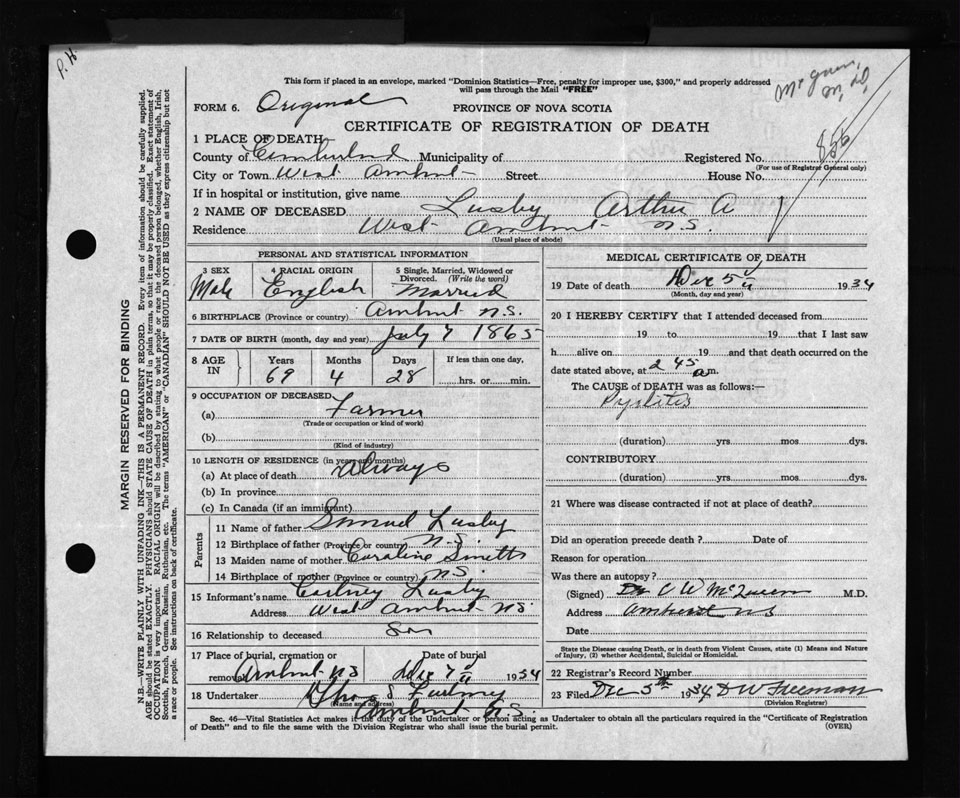 P. H
This form if placed in an envelope, marked "Dominion Statistics—Free, penalty for improper use, $300," and properly addressed
will pass through the Mail "FREE"
M. D.
FORM 6. Original PROVINCE OF NOVA SCOTIA
CERTIFICATE OF REGISTRATION OF DEATH
856
1 PLACE OF DEATH
County of Cumberland Municipality of Registered No.
(For use of Registrar General only)
City or Town West Amherst Street House No.
If in hospital or institution, give name
2 NAME OF DECEASED Lusby, Arthur A
Residence West Amherst N.S.
(Usual place of abode)
PERSONAL AND STATISTICAL INFORMATION
3 SEX 4 RACIAL ORIGIN 5 Single, Married, Widowed or
Divorced. (Write the word)
Male English Married
6 BIRTHPLACE (Province or country) Amherst N.S.
7 DATE OF BIRTH (month, day and year) July 7 1865
8 AGE IN Years Months Days If less than one day,
69 4 28 hrs. or min.
9 OCCUPATION OF DECEASED
(a) Farmer
(Trade or occupation or kind of work)
(b)
(Kind of industry)
10 LENGTH OF RESIDENCE (in years and months)
(a) At place of death Always
(b) In province
(c) In Canada (if an immigrant)
Parents
11 Name of father Samuel Lusby
12 Birthplace of father (Province or country) N.S.
13 Maiden name of mother Caroline Smith
14 Birthplace of mother (Province or country) N.S.
15 Informant's name Lusby
Address West Amherst N.S.
16 Relationship to deceased Son
17 Place of burial, cremation or Date of burial
removal Amherst N S Dec 7 1934
18 Undertaker
(Name and address)
Amherst N.S.
MEDICAL CERTIFICATE OF DEATH
19 Date of death Dec 5 1934
(Month, day and year)
20 I HEREBY CERTIFY that I attended deceased from
19 to 19 that I last saw
h alive on 19 and that death occurred on the
date stated above, at 2 45 a m.
The CAUSE of DEATH was as follows:—
Pyelitis
(duration) yrs. mos. dys.
CONTRIBUTORY
(duration) yrs. mos. dys.
21 Where was disease contracted if not at place of death?
Did an operation precede death? Date of
Reason for operation
Was there an autopsy?
(Signed) Dr C W McQueen M.D.
Address Amherst N S
Date
State the Disease causing Death, or in death from Violent Causes, state (1) Means and Nature
of Injury, (2) whether Accidental, Suicidal or Homicidal.
22 Registrar's Record Number
23 Filed Dec 5th 1934 D W Freeman
(Division Registrar)
Sec. 46—Vital Statistics Act makes it the duty of the Undertaker or person acting as Undertaker to obtain all the particulars required in the "Certificate of Registration
of Death" and to file the same with the Division Registrar who shall issue the burial permit. (OVER)
MARGIN RESERVED FOR BINDING
N.B.—WRITE PLAINLY WITH UNFADING INK—THIS IS A PERMANENT RECORD. Every item of information should be carefully supplied.
AGE should be stated EXACTLY. PHYSICIANS should STATE CAUSE OF DEATH in plain terms, so that it may be properly classified. Exact statement of
OCCUPATION is very important. RACIAL ORIGIN will be described by stating to what people or race the deceased person belonged, whether English, Irish,
Scottish, French, German, Russian, Ruthenian, etc. The terms "AMERICAN" or "CANADIAN" SHOULD NOT BE USED as they express citizenship but not
a race or people. See instructions on back of certificate.